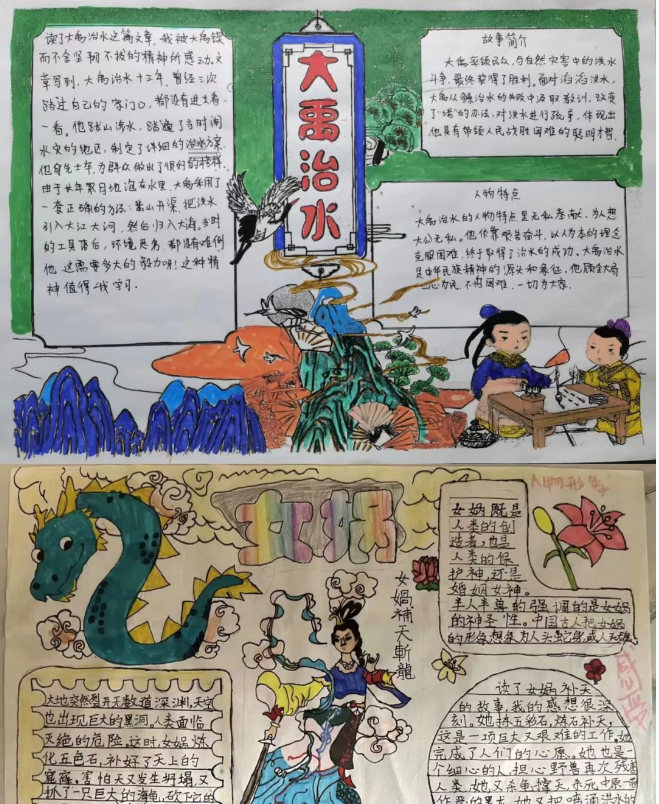 读了大禹治水这篇文章,我被大禹锲
而不舍坚韧不拔的精神所感动.文
章写到,大禹治水十三年,曾经三次
路过自己的家门口,都没有进去看
一看。他跋山涉水,踏遍了当时闹
水灾的地区,制定了详细的治水方案.
他身先士卒,为群众做出了很好的榜样.
由于长年累月地泡在水里,大禹采用了
一套正确的方法:凿山开渠,把洪水
引入大江大河,然后归入大海.当时
的工具落后,环境恶劣,都没有难倒
他,这需要多大的毅力呀!这种精
神值得我学习.
大禹治水
故事简介
大禹率领民众,与自然灾害中的洪水
斗争,最终获得了胜利。面对滔滔洪水,
大禹从鲧治水的失败中汲取教训,改变
了"堵"的办法,对洪水进行疏导,体现出
他具有带领人民战胜困难的聪明才智.
人物特点
大禹治水的人物特点是无私奉献,为人想
大公无私。他依靠艰苦奋斗、以人为本的理念
克服困难,终于取得了治水的成功。大禹治水
是中华民族精神的源头和象征,他顾全大局
心为民,不怕困难,一切为大家.
女娲
人物形象
女娲既是
人类的创
造者,也是
人类的保
护神,还是
婚姻女神。
半人半兽的强调的是女娲
的神圣性。中国古人把女娲
的形象想象为人头蛇身,或人头
女娲补天斩龍
感心
大地突然裂开无数道深渊,天空
也出现巨大的黑洞,人类面临
灭绝的危险,这时,女娲炼
化五色石,补好了天上的
窟窿,害怕天又发生坍塌,又
抓了一只巨大的海龟,砍下它的
读了女娲补天
的故事,我的感想很深
刻。她拣五彩石,炼石补天,
这是一项巨大又艰难的工作,她
完成了人们的心愿。她也是一
个细心的人,担心野兽再次残害
人类,她又杀龟撑天,杀死中原一带